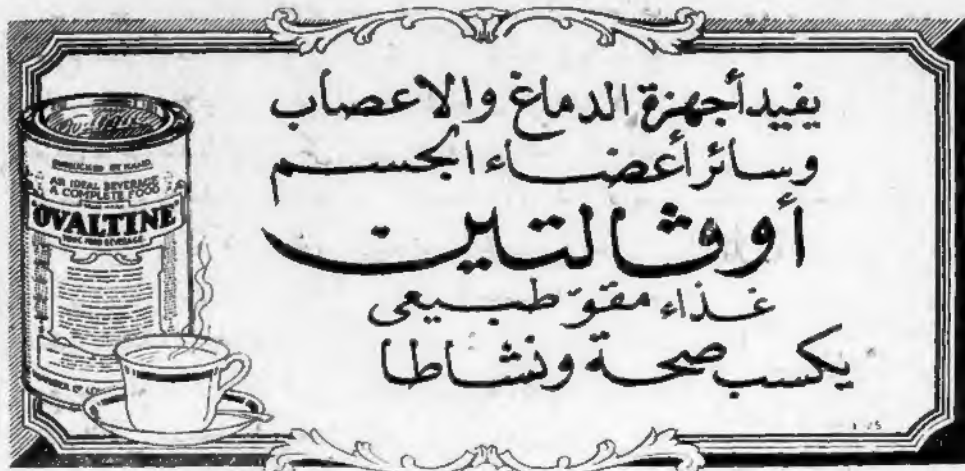 يفيد أجهزة الدماغ والاعصاب
وسائر أعضاء الجسم
أوڤالتين
غذاء مقوّ طبيعى
يكسب صحة ونشاطا
AN IDEAL BEVERAGE
A COMPLETE FOOD
'OVALTINE'
TONIC FOOD BEVERAGE